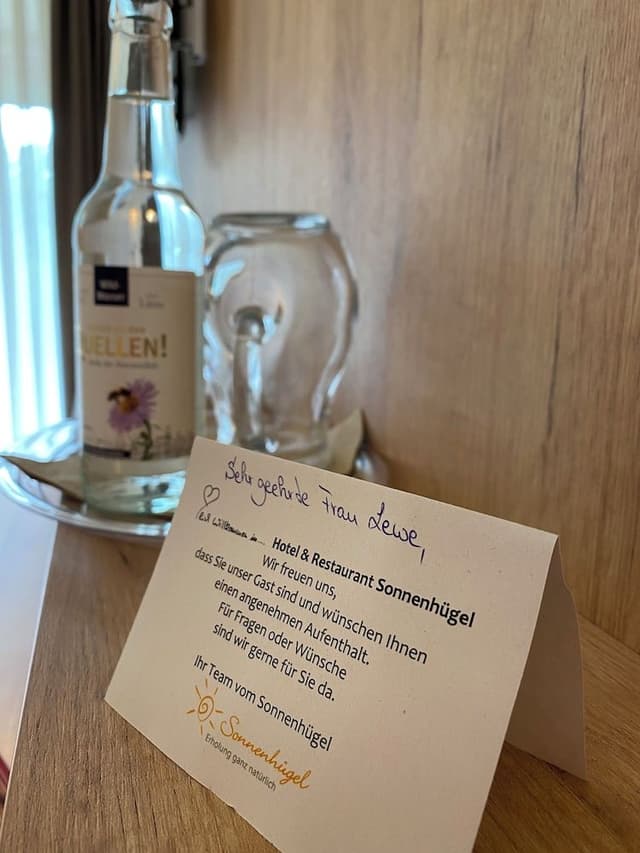 Wild
Wasser
UELLEN!
Sehr geehrte Frau Lewe,
Hotel & Restaurant Sonnenhügel
Wir freuen uns,
dass Sie unser Gast sind und wünschen Ihnen
einen angenehmen Aufenthalt.
Für Fragen oder Wünsche
sind wir gerne für Sie da.
Ihr Team vom Sonnenhügel
Sonnenhügel
Erholung ganz natürlich